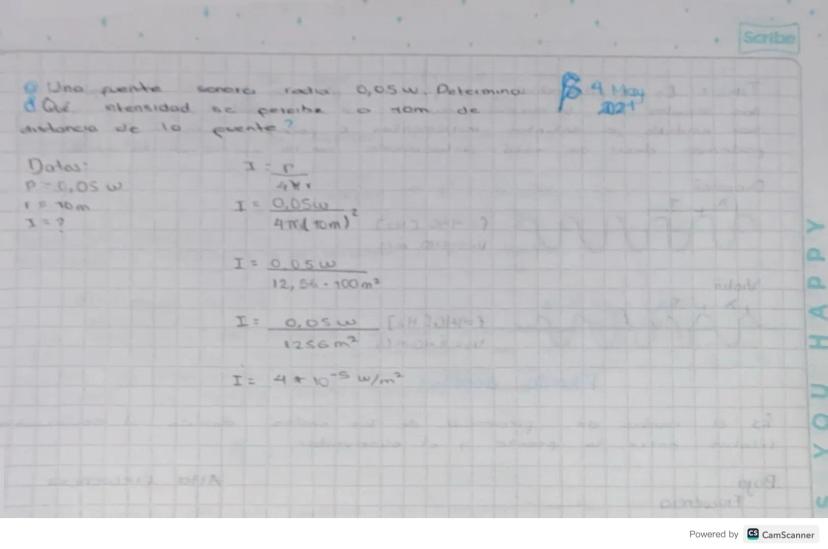 Scribe
Una fuente sonora radia 0,05 w. Determina
d Qué intensidad se percibe a 10m de
distancia de la fuente?
4 May
2021
Datos:
P = 0,05 w
r = 10m
I = ?
I = P
4πr
I = 0,05w
4π(10m)²
I = 0.05w
12,56 · 100m²
I = 0,05w
1256m²
I = 4 * 10⁻⁵ w/m²
S YOU HAPPY
Powered by CS CamScanner